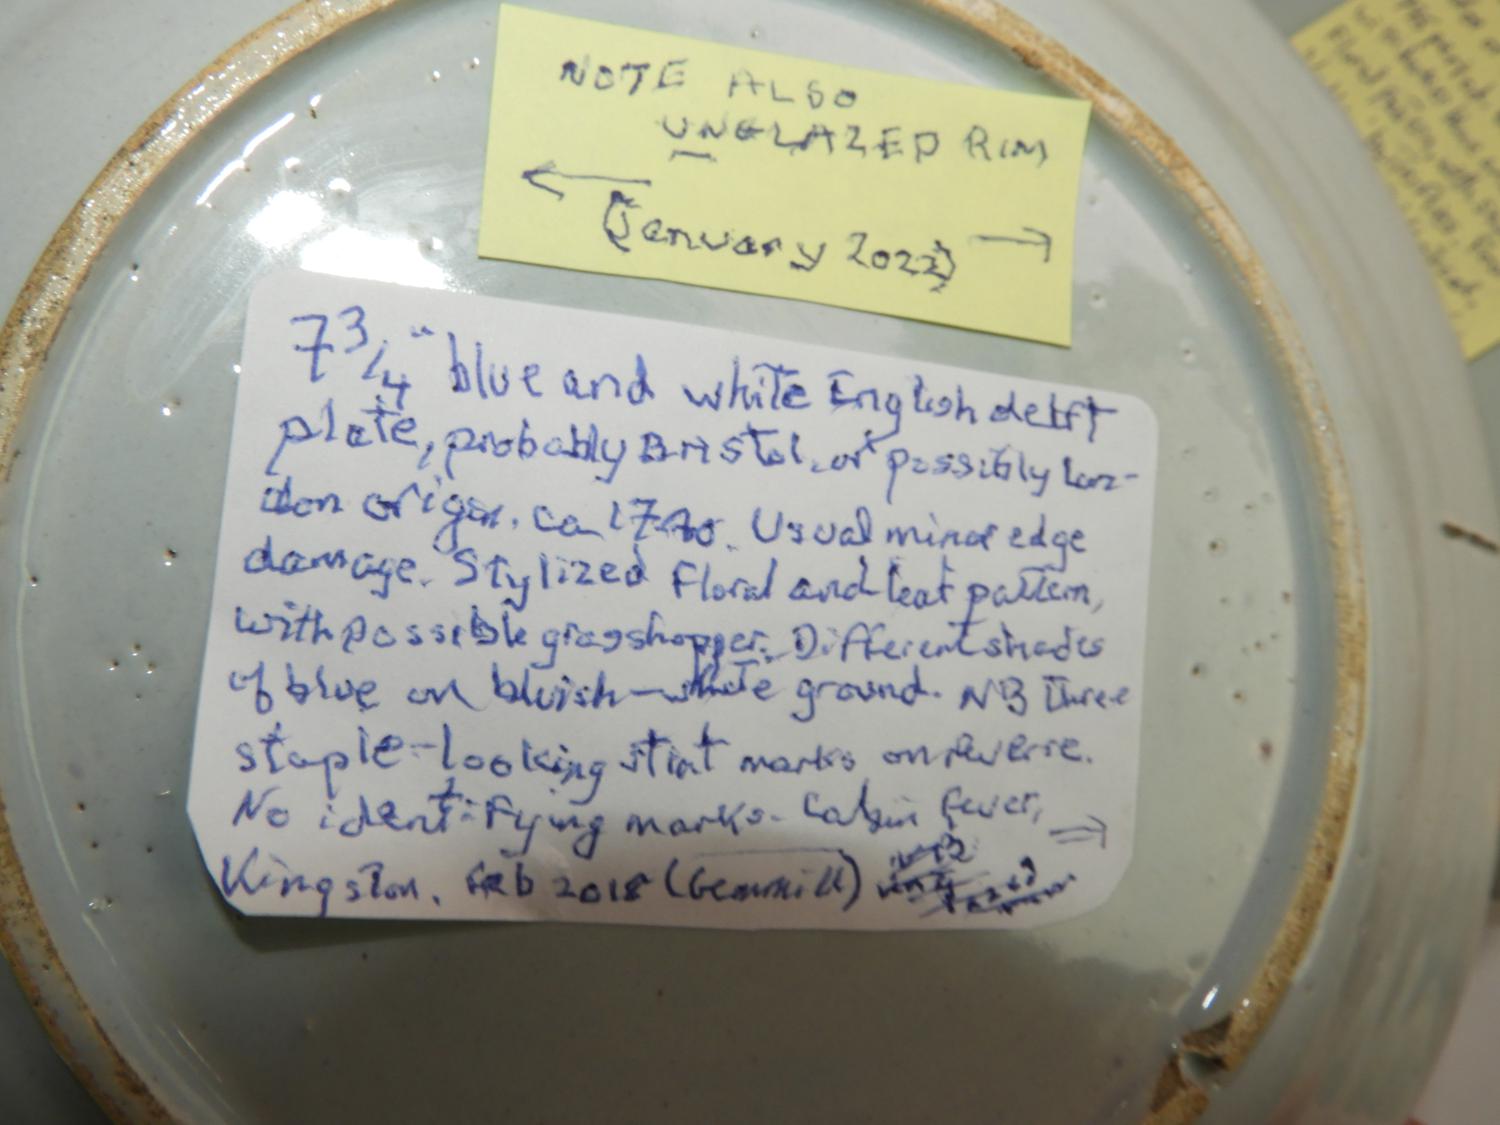 NOTE ALSO
UNGLAZED RIM
← →
(January 2022)
7 3/4" blue and white English delft
plate, probably Bristol, or possibly Lon-
don origin, ca 17. Usual minor edge
damage. Stylized floral and leaf pattern,
with possible grasshopper. Different shades
of blue on bluish-white ground. NB Three
staple-looking stilt marks on reverse.
No identifying marks. Cabin Fever, →
Kingston, Feb 2018 (Gemmill)